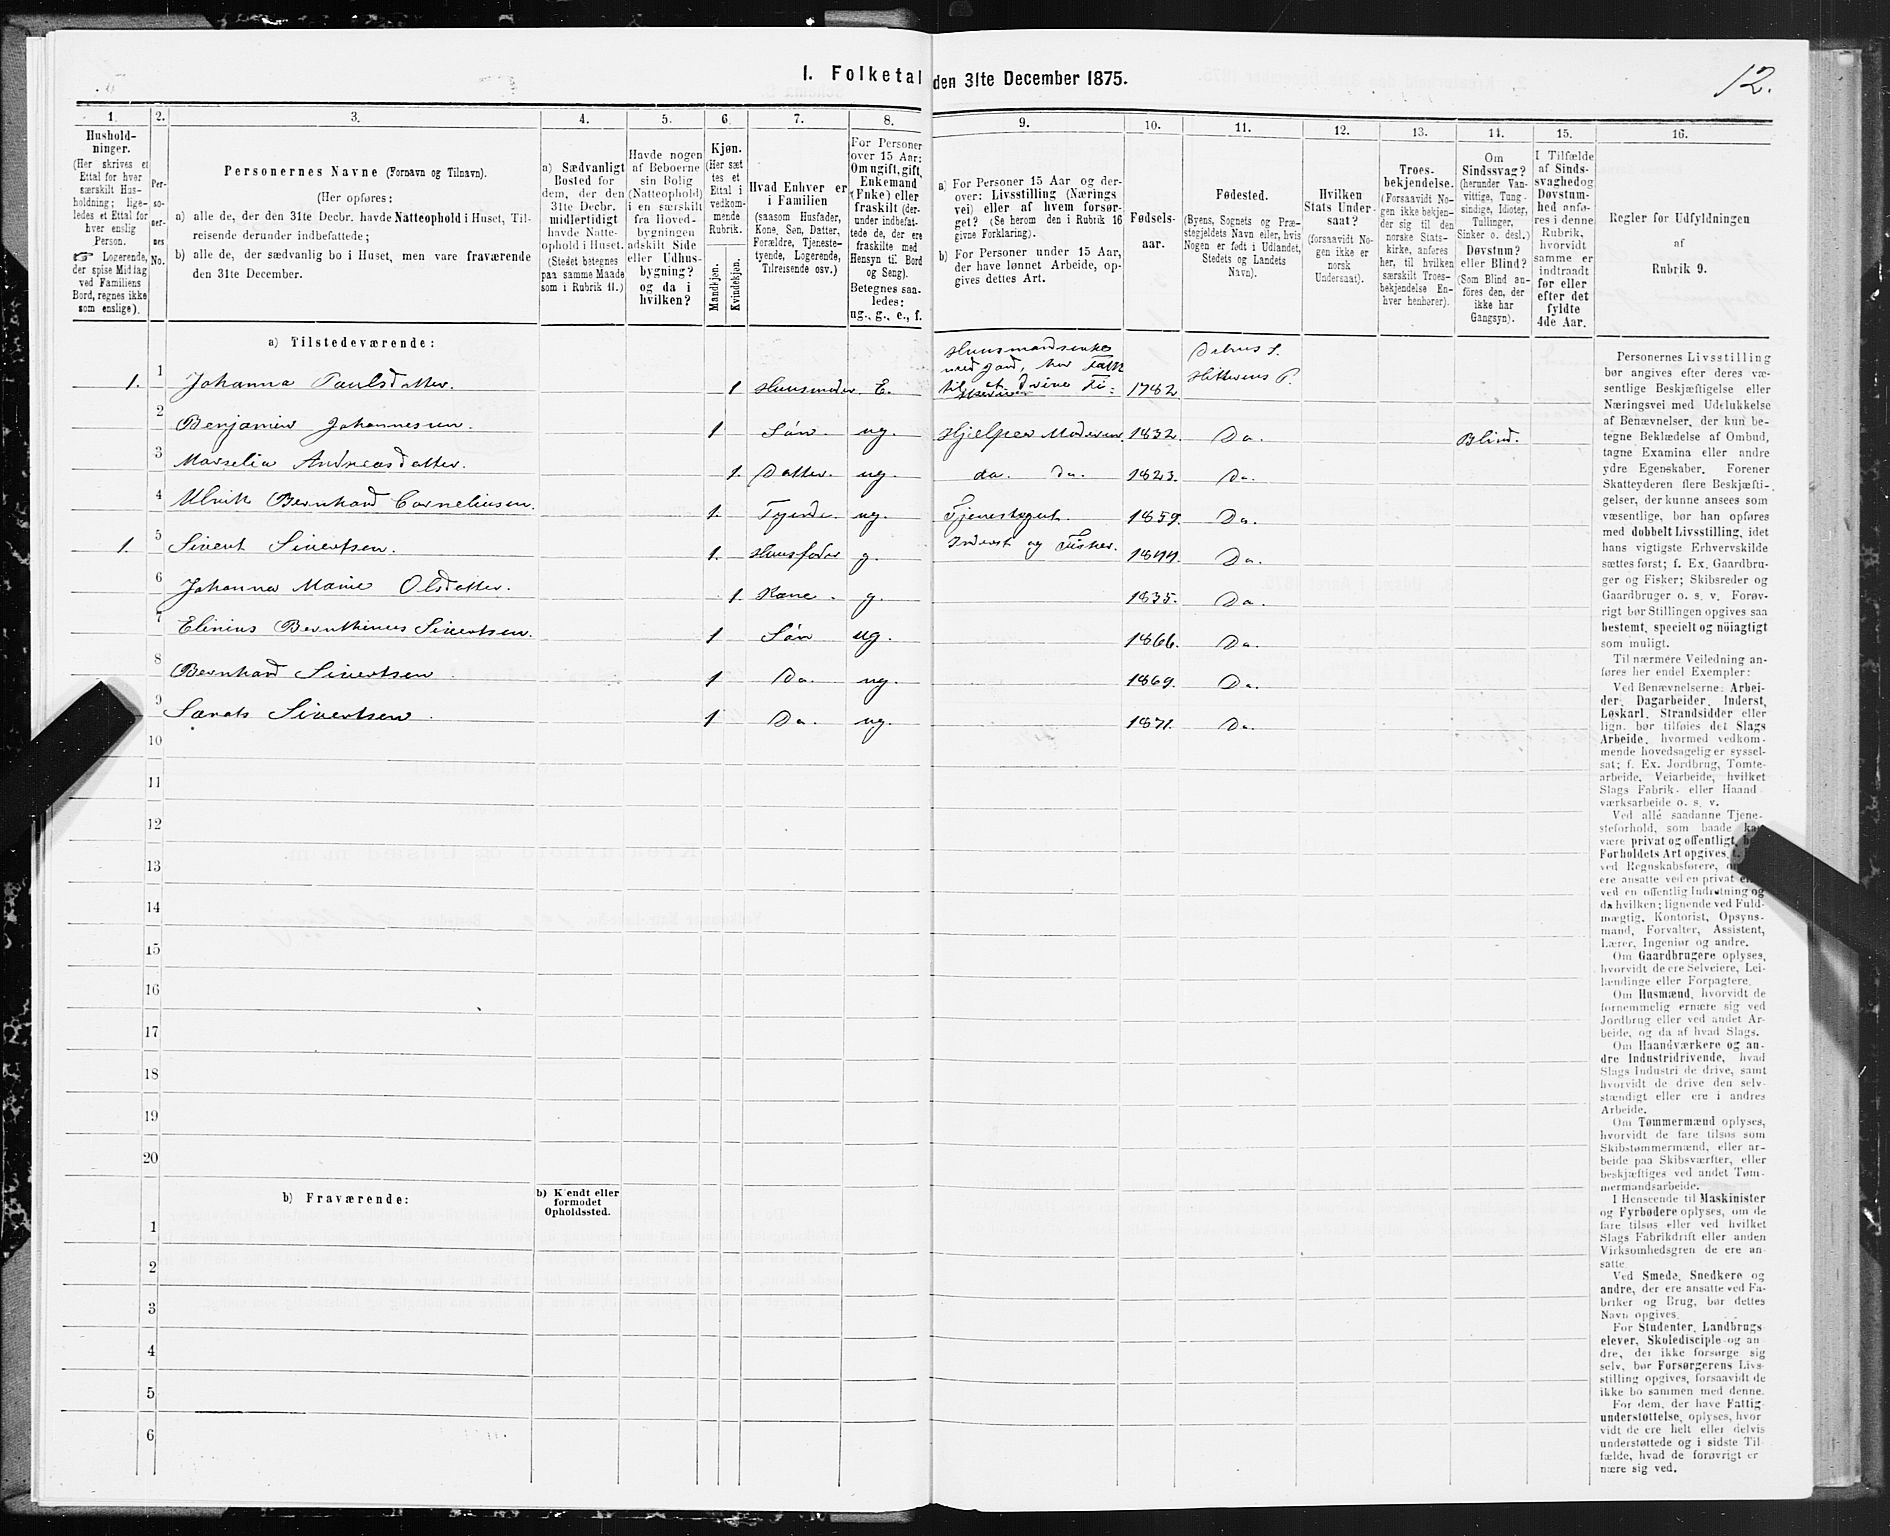 I. Folketal den 31te December 1875.
12.
1.
Hushold-
ninger.
(Her skrives et
Ettal for hver
særskilt Hus-
holdning; lige-
ledes et Ettal for
hver enslig
Person.
☞ Logerende,
der spise Middag
ved Familiens
Bord, regnes ikke
som enslige).
2.
Per-
so-
ner-
nes
No.
3.
Personernes Navne (Fornavn og Tilnavn).
(Her opføres:
a) alle de, der den 31te Decbr. havde Natteophold i Huset, Til-
reisende derunder indbefattede;
b) alle de, der sædvanlig bo i Huset, men vare fraværende
den 31te December.
4.
a) Sædvanligt
Bosted for
dem, der den
31te Decbr.
midlertidigt
havde Natte-
ophold i Huset.
(Stedet betegnes
paa samme Maade
som i Rubrik 11.)
5.
Havde nogen
af Beboerne
sin Bolig
(Natteophold)
i en særskilt
fra Hoved-
bygningen
adskilt Side
eller Udhus-
bygning?
og da i
hvilken?
6.
Kjøn.
(Her sæt
tes et
Ettal i
vedkom-
mende
Rubrik.
Mandkjøn.
Kvindekjøn.
7.
Hvad Enhver er
i Familien
(saasom Husfader,
Kone, Søn, Datter,
Forældre, Tjeneste-
tyende, Logerende,
Tilreisende osv.)
8.
For Personer
over 15 Aar:
Om ugift, gift,
Enkemand
(Enke) eller
fraskilt (der-
under indbefat-
tede de, der ere
fraskilte med
Hensyn til Bord
og Seng).
Betegnes saa-
ledes:
ug., g., e., f.
9.
a) For Personer 15 Aar og der-
over: Livsstilling (Nærings
vei) eller af hvem forsør-
get? (Se herom den i Rubrik 16
givne Forklaring).
b) For Personer under 15 Aar,
der have lønnet Arbeide, op-
gives dettes Art.
10.
Fødsels-
aar.
11.
Fødested.
(Byens, Sognets og Præ-
stegjeldets Navn eller, hvis
Nogen er født i Udlandet,
Stedets og Landets
Navn).
12.
Hvilken
Stats Under-
saat?
(forsaavidt No-
gen ikke er
norsk
Undersaat).
13.
Troes-
bekjendelse.
(Forsaavidt No-
gen ikke bekjen-
der sig til den
norske Stats-
kirke, anføres
her, til hvilken
særskilt Troes-
bekjendelse En-
hver henhører).
14.
Om
Sindssvag?
(herunder Van-
vittige, Tung-
sindige, Idioter,
Tullinger,
Sinker o. desl.)
Døvstum?
eller Blind?
(Som Blind an-
føres den, der
ikke har
Gangsyn).
15.
I Tilfælde
af Sinds-
svaghed og
Døvstum-
hed anfø-
res i denne
Rubrik,
hvorvidt
samme er
indtraadt
før eller
efter det
fyldte
4de Aar.
16.
Regler for Udfyldningen
af
Rubrik 9.
a) Tilstedeværende:
1. 1 Johanna Paulsdatter. 1 Huusmoder. E. Huusmandsenke med Jord, 1782
2 Benjamin Johannesen. 1 Søn. ug. Hjelper Moderen. 1832. Do. Blind.
3 Marselia Andreasdatter. 1. Datter. ug. do. do. 1823. Do.
4 Ulrik Bernhard Corneliusen. 1. Tyende. ug. Tjenestegut. 1859. Do.
1. 5 Sivert Sivertsen. 1. Huusfader g. Inderst og Fisker. 1844. Do.
6 Johanna Marie Olsdatter. 1. Kone. g. 1835. Do.
7 Elinius Bernthinus Sivertsen. 1 Søn ug. 1866. Do.
8 Bernhard Sivertsen. 1 Do. ug. 1869. Do.
9 Sivertsen. 1 Do. ug. 1871. Do.
10
11
12
13
14
15
16
17
18
19
20
b) Fraværende:
b) Kjendt eller
formodet
Opholdssted.
1
2
3
4
5
6
Personernes Livsstilling
bør angives efter deres væ-
sentlige Beskjæftigelse eller
Næringsvei med Udelukkelse
af Benævnelser, der kun be-
tegne Beklædelse af Ombud,
tagne Examina eller andre
ydre Egenskaber. Forener
Skatteyderen flere Beskjæfti-
gelser, der kunne ansees som
væsentlige, bør han opføres
med dobbelt Livsstilling, idet
hans vigtigste Erhvervskilde
sættes først; f. Ex. Gaardbru-
ger og Fisker; Skibsreder og
Gaardbruger o. s. v. Forøv-
rigt bør Stillingen opgives saa
bestemt, specielt og nöiagtigt
som muligt.
Til nærmere Veiledning an-
føres her endel Exempler:
Ved Benævnelserne: Arbei-
der, Dagarbeider, Inderst,
Løskarl, Strandsidder eller
lign. bør tilføies det Slags
Arbeide, hvormed vedkom-
mende hovedsagelig er syssel-
sat; f. Ex. Jordbrug, Tomte-
arbeide, Veiarbeide, hvilket
Slags Fabrik- eller Haand
værksarbeide o. s. v.
Ved alle saadanne Tjene-
steforhold, som baade
være privat og offentligt,
Forholdets Art opgives,
ved Regnskabsførere,
ere ansatte ved en privat
ved en offentlig Indretning og
da hvilken; lignende ved Fuld-
mægtig, Kontorist, Opsyns-
mand, Forvalter, Assistent,
Lærer, Ingeniør og andre.
Om Gaardbrugere oplyses,
hvorvidt de ere Selveiere, Lei-
lændinge eller Forpagtere.
Om Husmænd, hvorvidt de
fornemmelig ernære sig ved
Jordbrug eller ved andet Ar-
beide, og da af hvad Slags.
Om Haandværkere og an-
dre Industridrivende, hvad
Slags Industri de drive, samt
hvorvidt de drive den selv-
stændigt eller ere i andres
Arbeide.
Om Tømmermænd oplyses,
hvorvidt de fare tilsøs som
Skibstømmermænd, eller ar-
beide paa Skibsværfter, eller
beskjæftiges ved andet Tøm-
mermandsarbeide.
I Henseende til Maskinister
og Fyrbødere oplyses, om de
fare tilsøs eller ved hvilket
Slags Fabrikdrift eller anden
Virksomhedsgren de ere an-
satte.
Ved Smede, Snedkere og
andre, der ere ansatte ved Fa-
briker og Brug, bør dettes
Navn opgives.
For Studenter, Landbrugs
elever, Skoledisciple og an-
dre, der ikke forsørge sig
selv, bør Forsørgerens Livs-
stilling opgives, forsaavidt de
ikke bo sammen med denne.
For dem, der have Fattig
understøttelse, oplyses, hvor
vidt de ere helt eller delvis
understøttede og i sidste Til-
fælde, hvad de forøvrigt er
nære sig ved.